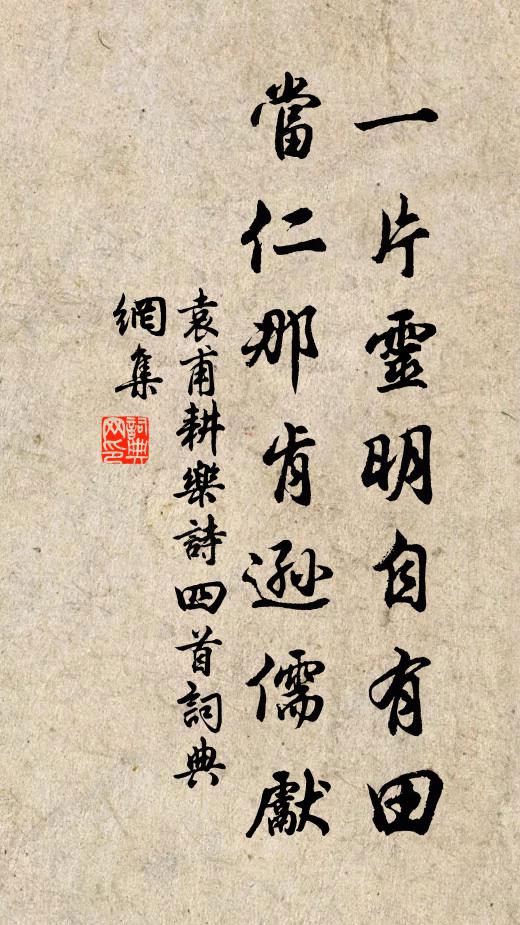 一片靈明自有田
當仁那肯遜儒獻
袁甫耕樂詩四首詞典
網集
詞典
网印